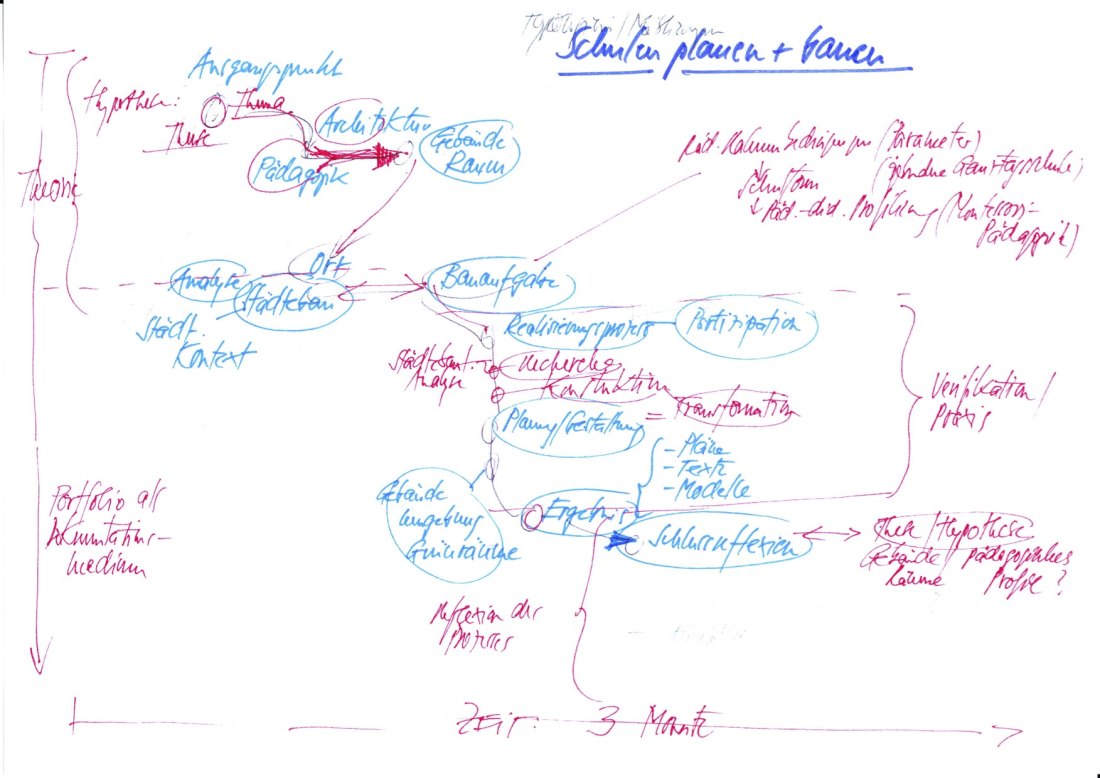 Schulen planen + bauen
Ausgangspunkt
Hypothese:
Thema
These
Architektur
Gebäude
Raum
Pädagogik
Theorie
Päd. Rahmenbedingungen (Parameter)
(gebundene Ganztagsschule)
Schulform
Päd.-did. Profilierung (Montessori-
Pädagogik)
Ort
Analyse
Städtebau
Bauaufgabe
Städt.
Kontext
Realisierungsprozess
Partizipation
Städtebaul.
Analyse
Recherche
Konstruktion
= Transformation
Planung/Gestaltung
Verifikation/
Praxis
- Pläne
- Texte
- Modelle
Gebäude
Umgebung
Grünräume
Ergebnis
Schlussreflexion
These/Hypothese
Gebäude / pädagogisches
Räume Profil?
Portfolio als
Dokumentations-
medium
Reflexion des
Prozesses
ZEIT: 3 Monate